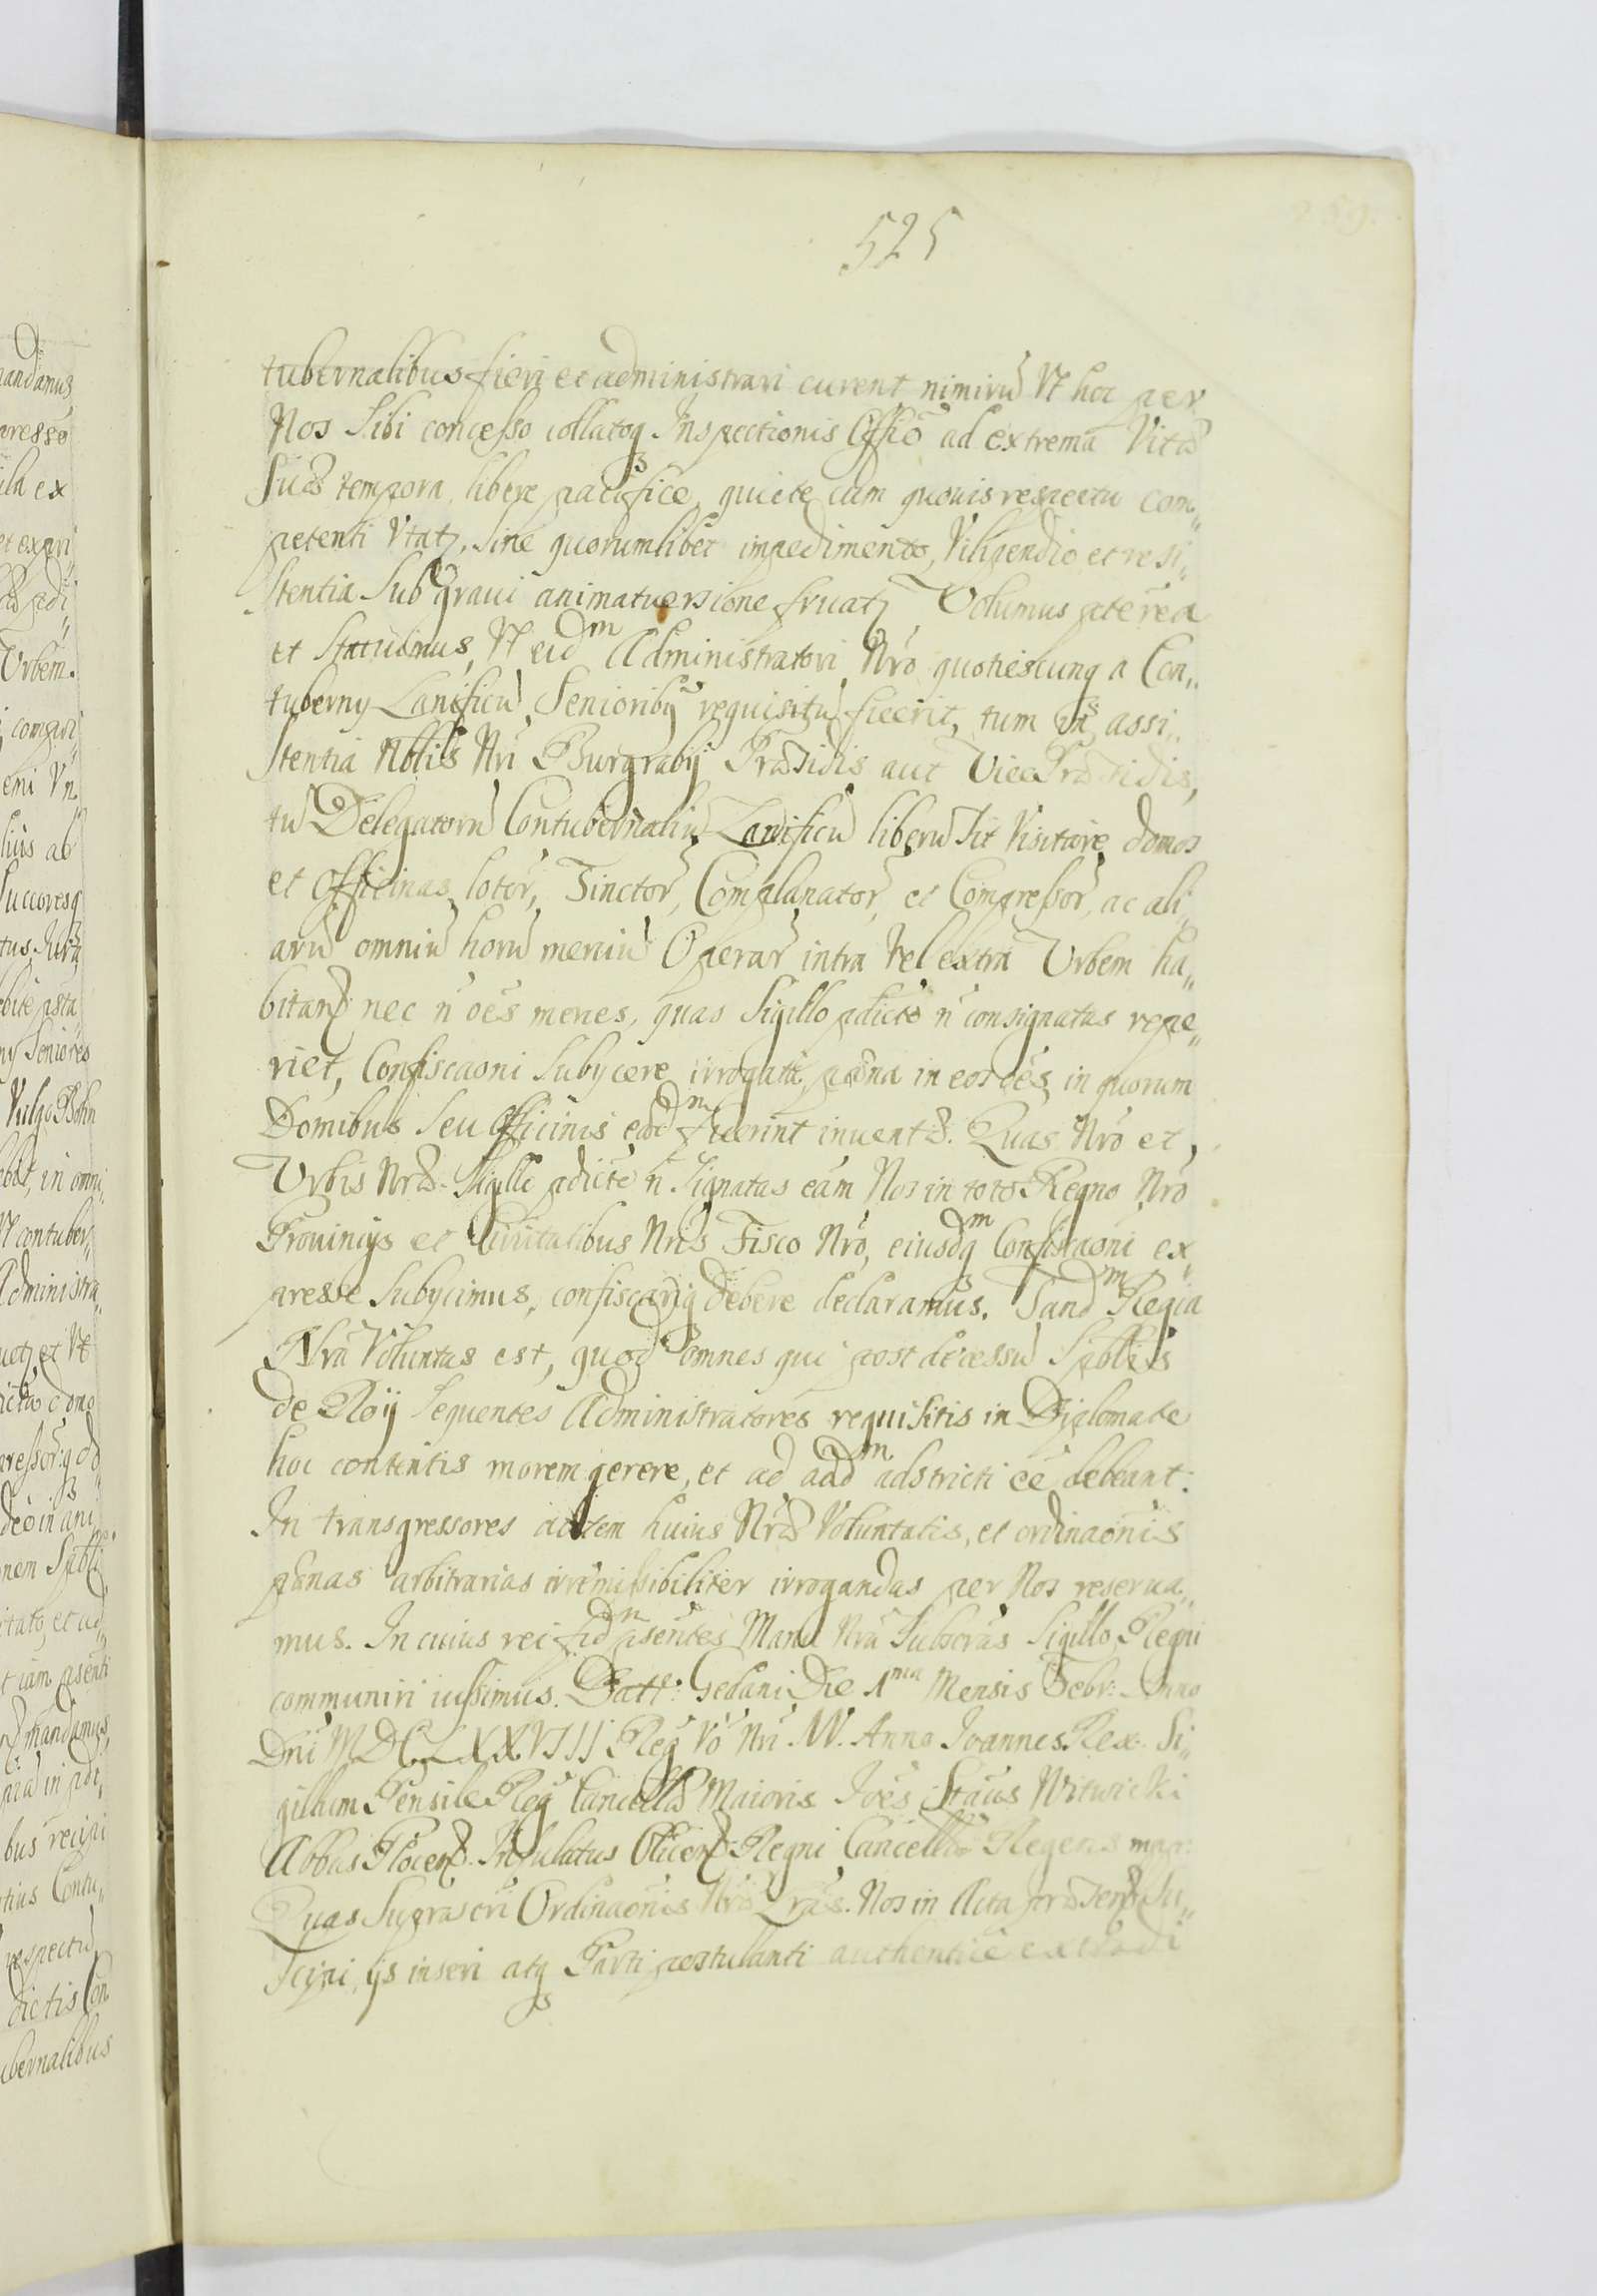 525
tubernalibus fieri et administrari curent nimirũ Vt hoc per
Nos Sibi concesso collatoq Inspectionis Officõ ad extrema Vitæ
Suæ tempora, libere pacifice, quiete cum quouis respectu com„
petenti Vtatz, Sine quorumlibet impedimento, Vilipendio et resi„
stentia Sub graui animatuersione fruatz. Volumus pterea
et Statuimus, Vt eidm Administratori Nro quotiescunq a Con„
tuberny Lanificũ Senioribq requisitũ fuerit, tum assi„
stentia Nobilis Nri Burgrabij Præsidis aut Vice Præsidis,
tũ Delegatorũ Contubernaliũ Lanificũ liberũ sit Visitare domos
et Officinas lotor, Tinctor, Complanator, et Compressor, ac ali„
arũ omniũ horũ merciũ Operar intra Vel extra Vrbem ha„
bitan nec ñ oẽs merces, quas Sigillo pdicto ñ consignatas repe„
riet, Confiscaõni Subijcere irrogata pæna in eos oẽs, in quorum
Domibus Seu Officinis eædm fuerint inuentæ. Quas Nro et
Vrbis Nræ Sigillo pdicto ñ Signatas eam Nos in toto Regno Nro
Prouincijs et Ciuitatibus Nris Fisco Nro, eiusdmq Confiscaõni ex„
presse Subijcimus, confiscariq debere declaramus. Tandm Regia
Nra Voluntas est, quod omnes qui post decessũ Spblis
de Roij Sequentes Administratores requisitis in Diplomate
hoc contentis morem gerere, et ad eadm adstricti eẽ debeant.
In transgressores autem huius Nræ Voluntatis, et ordinaõnis
pænas arbitrarias irremissibiliter irrogandas per Nos reserua„
mus. In cuius rei fidm psentes Manu Nra Subscrãs Sigillo Regni
communiri iussimus. Datt: Gedani Die 1ma Mensis Febr: Anno
Dni MDCLXXVIII Reg Võ Nri IV. Anno Joannes Rex. Si„
gillum Pensile Reg Cancellæ Maioris Joẽs Staus Witwicki
Abbas Plocen. Insulatus Regni Cancellæ Regens mpr:
Quas Suprascri Ordinaõnis Nræ Lrãs. Nos in Acta præsen Su„
scipi, ijs inseri atq Parti postulanti authentice extradi